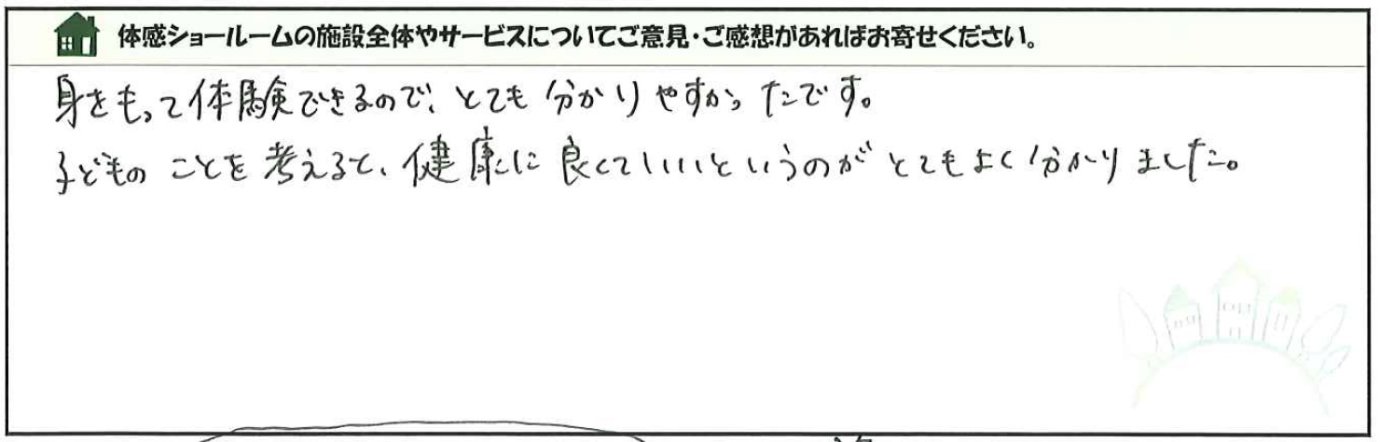 体感ショールームの施設全体やサービスについてご意見・ご感想があればお寄せください。
身をもって体験できるので、とても分かりやすかったです。
子どものことを考えると、健康に良くていいというのがとてもよく分かりました。